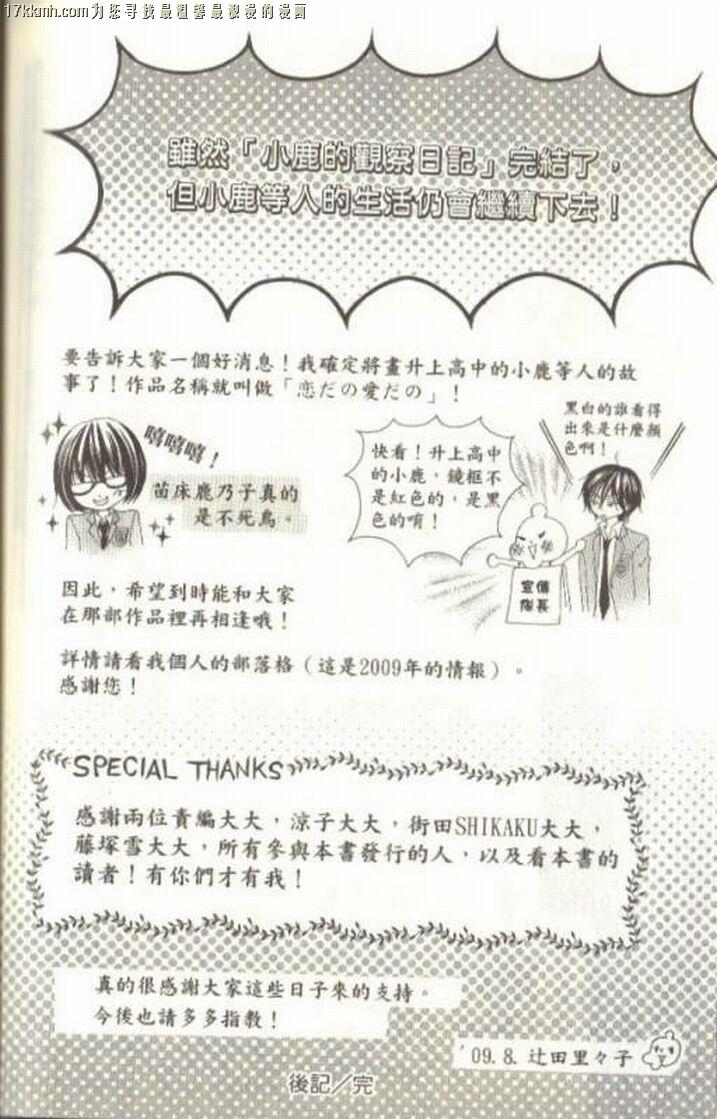 17kkmh.com为您寻找最温馨最浪漫的漫画
雖然「小鹿的觀察日記」完結了，
但小鹿等人的生活仍會繼續下去！
要告訴大家一個好消息！我確定將畫升上高中的小鹿等人的故
事了！作品名稱就叫做「恋だの愛だの」！
嘻嘻嘻！
苗床鹿乃子真的
是不死鳥。
快看！升上高中
的小鹿，鏡框不
是紅色的，是黑
色的唷！
黑白的誰看得
出來是什麼顏
色啊！
宣傳
隊長
因此，希望到時能和大家
在那部作品裡再相逢哦！
詳情請看我個人的部落格（這是2009年的情報）。
感謝您！
SPECIAL THANKS
感謝兩位責編大大，涼子大大，街田SHIKAKU大大，
藤塚雪大大，所有參與本書發行的人，以及看本書的
讀者！有你們才有我！
真的很感謝大家這些日子來的支持。
今後也請多多指教！
'09.8.辻田里々子
後記／完